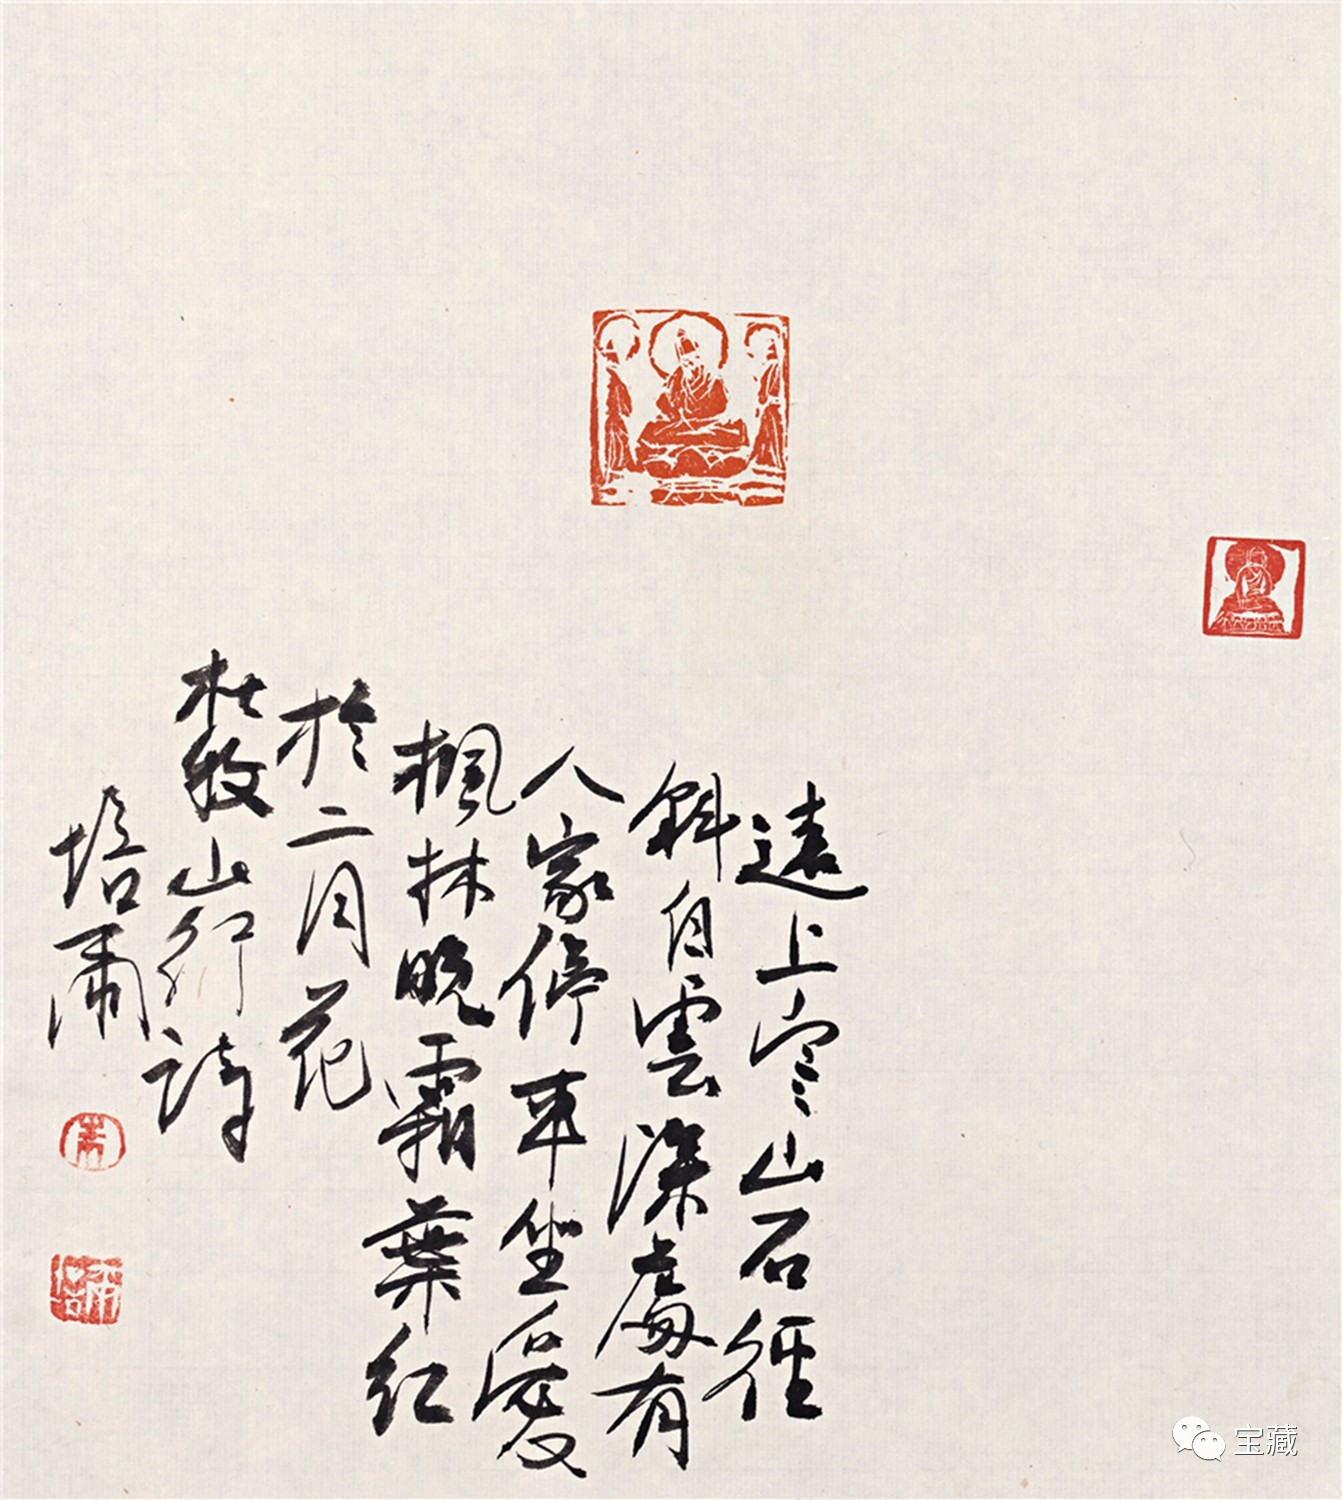 遠上寒山石徑
斜白雲深處有
人家停車坐愛
楓林晚霜葉紅
於二月花
杜牧山行詩
培爾
宝藏